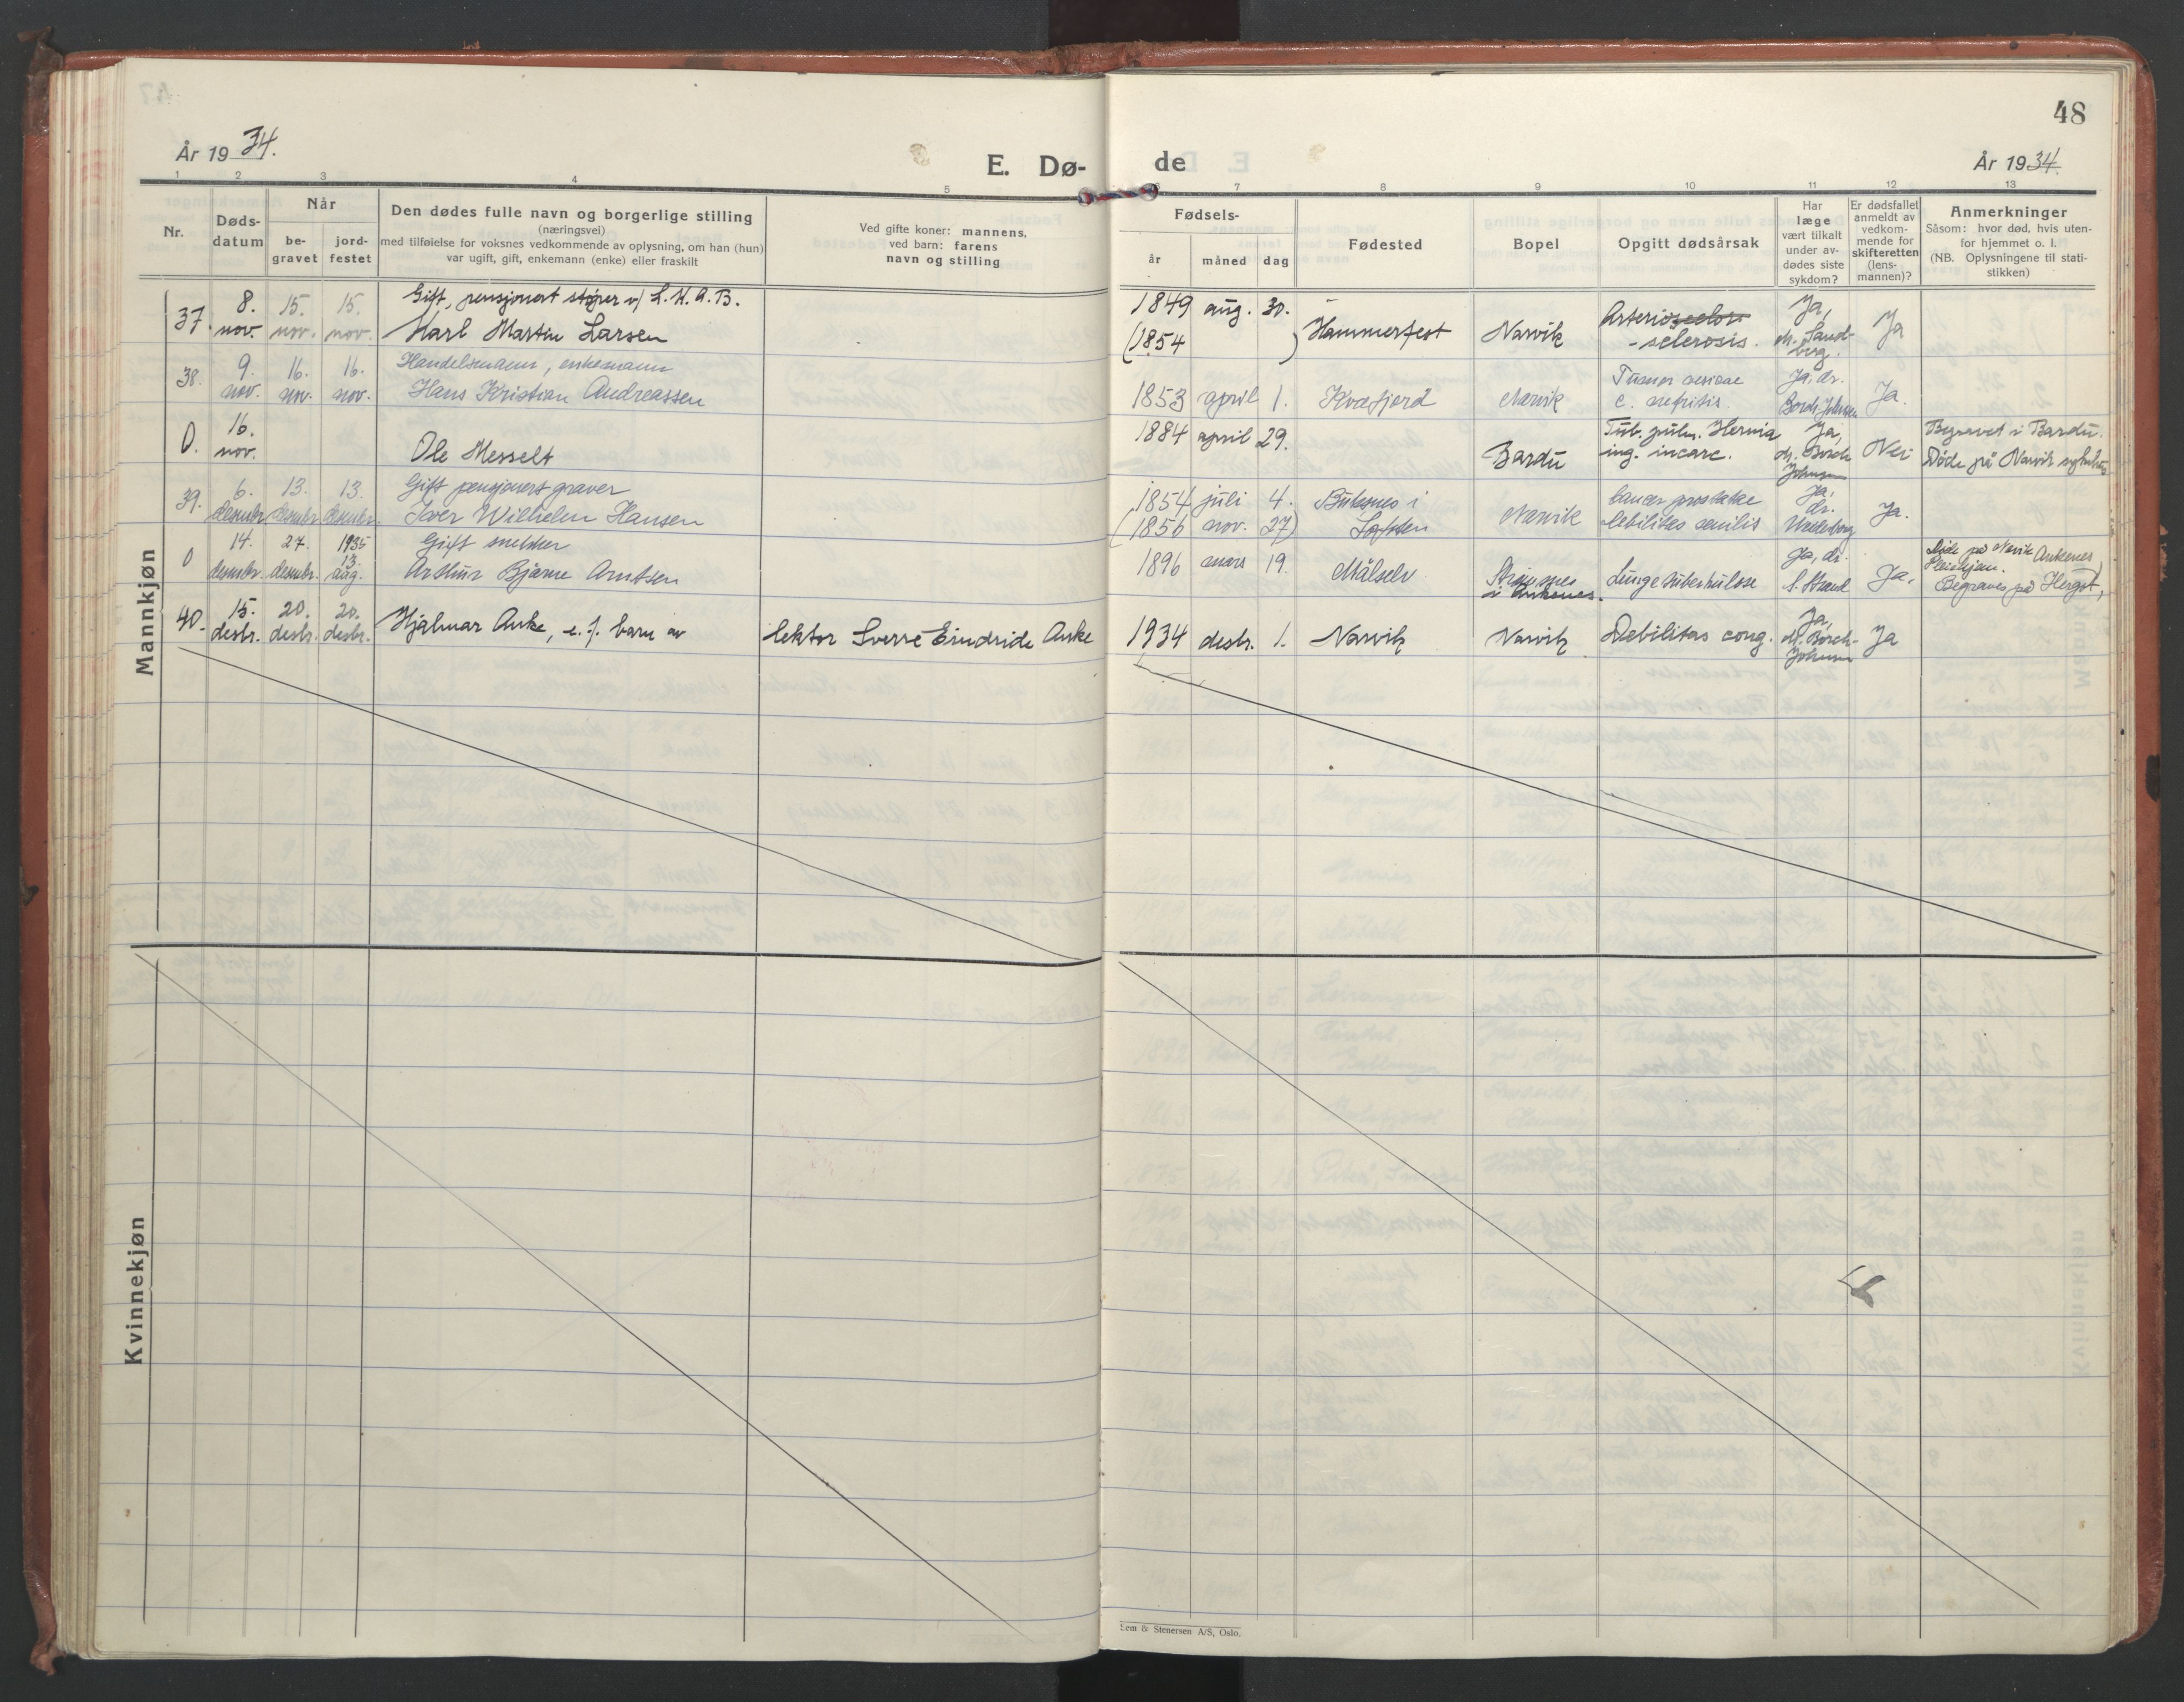 48
År 1934.
E. Dø-
de
År 1934.
1 2 3 4 5
7 8 9 10 11 12 13
Nr.
Døds-
datum
Når
be-
gravet
jord-
festet
Den dødes fulle navn og borgerlige stilling
(næringsvei)
med tilføielse for voksnes vedkommende av oplysning, om han (hun)
var ugift, gift, enkemann (enke) eller fraskilt
Ved gifte koner: mannens,
ved barn: farens
navn og stilling
Fødsels-
år
måned
dag
Fødested
Bopel
Opgitt dødsårsak
Har
læge
vært tilkalt
under av-
dødes siste
sykdom?
Er dødsfallet
anmeldt av
vedkom-
mende for
skifteretten
(lens-
mannen)?
Anmerkninger
Såsom: hvor død, hvis uten-
for hjemmet o. l.
(NB. Oplysningene til stati-
stikken)
Mannkjøn
37. 8. nov. 15. nov. 15. nov.
Gift, pensjonert støper v/ L.K.A.B.
Karl Martin Larsen
1849 aug. 30.
(1854 )
Hammerfest
Narvik
Arterioseclor-
-sclerosis.
Ja,
dr. Sand-
berg.
Ja
38. 9. nov. 16. nov. 16. nov.
Handelsmann, enkemann
Hans Kristian Andreassen
1853 april 1.
Kvæfjord
Narvik
Tumor vesicae
c. nefritis.
Ja, dr.
Borch Johnsen
Ja.
0. 16. nov.
Ole Messelt
1884 april 29.
Bardu
Tub. pulm. Hernia
ing. incarc.
Ja,
dr. Borch
Johnsen
Nei
Begravet i Bardu.
Døde på Narvik sykehus
39. 6. desembr. 13. desembr. 13. desembr.
Gift pensjonert graver
Iver Wilhelm Hansen
1854 juli 4.
(1856 nov. 27)
Buksnes i
Lofoten
Narvik
Cancer prostatae
Debilitas senilis
Ja,
dr.
Ja.
0 14. desembr. 27. desembr. 1935 13. aug.
Gift snekker
Arthur Bjarne Arntsen
1896 mars 19.
Målselv
Straumsnes
i Ankenes.
Lungetuberkulose
Ja, dr.
S. Strand
Ja.
Døde på Narvik
Pleiehjem.
Ankenes
Begraves på Hergot,
40. 15. desbr. 20. desbr. 20. desbr.
Hjalmar Anke, e. f. barn av
lektor Sverre Eindride Anke
1934 desbr. 1.
Narvik
Narvik
Debilitas cong.
Ja,
dr. Borch-
Johnsen
Ja
Kvinnekjøn
Sem & Stenersen A/S, Oslo.